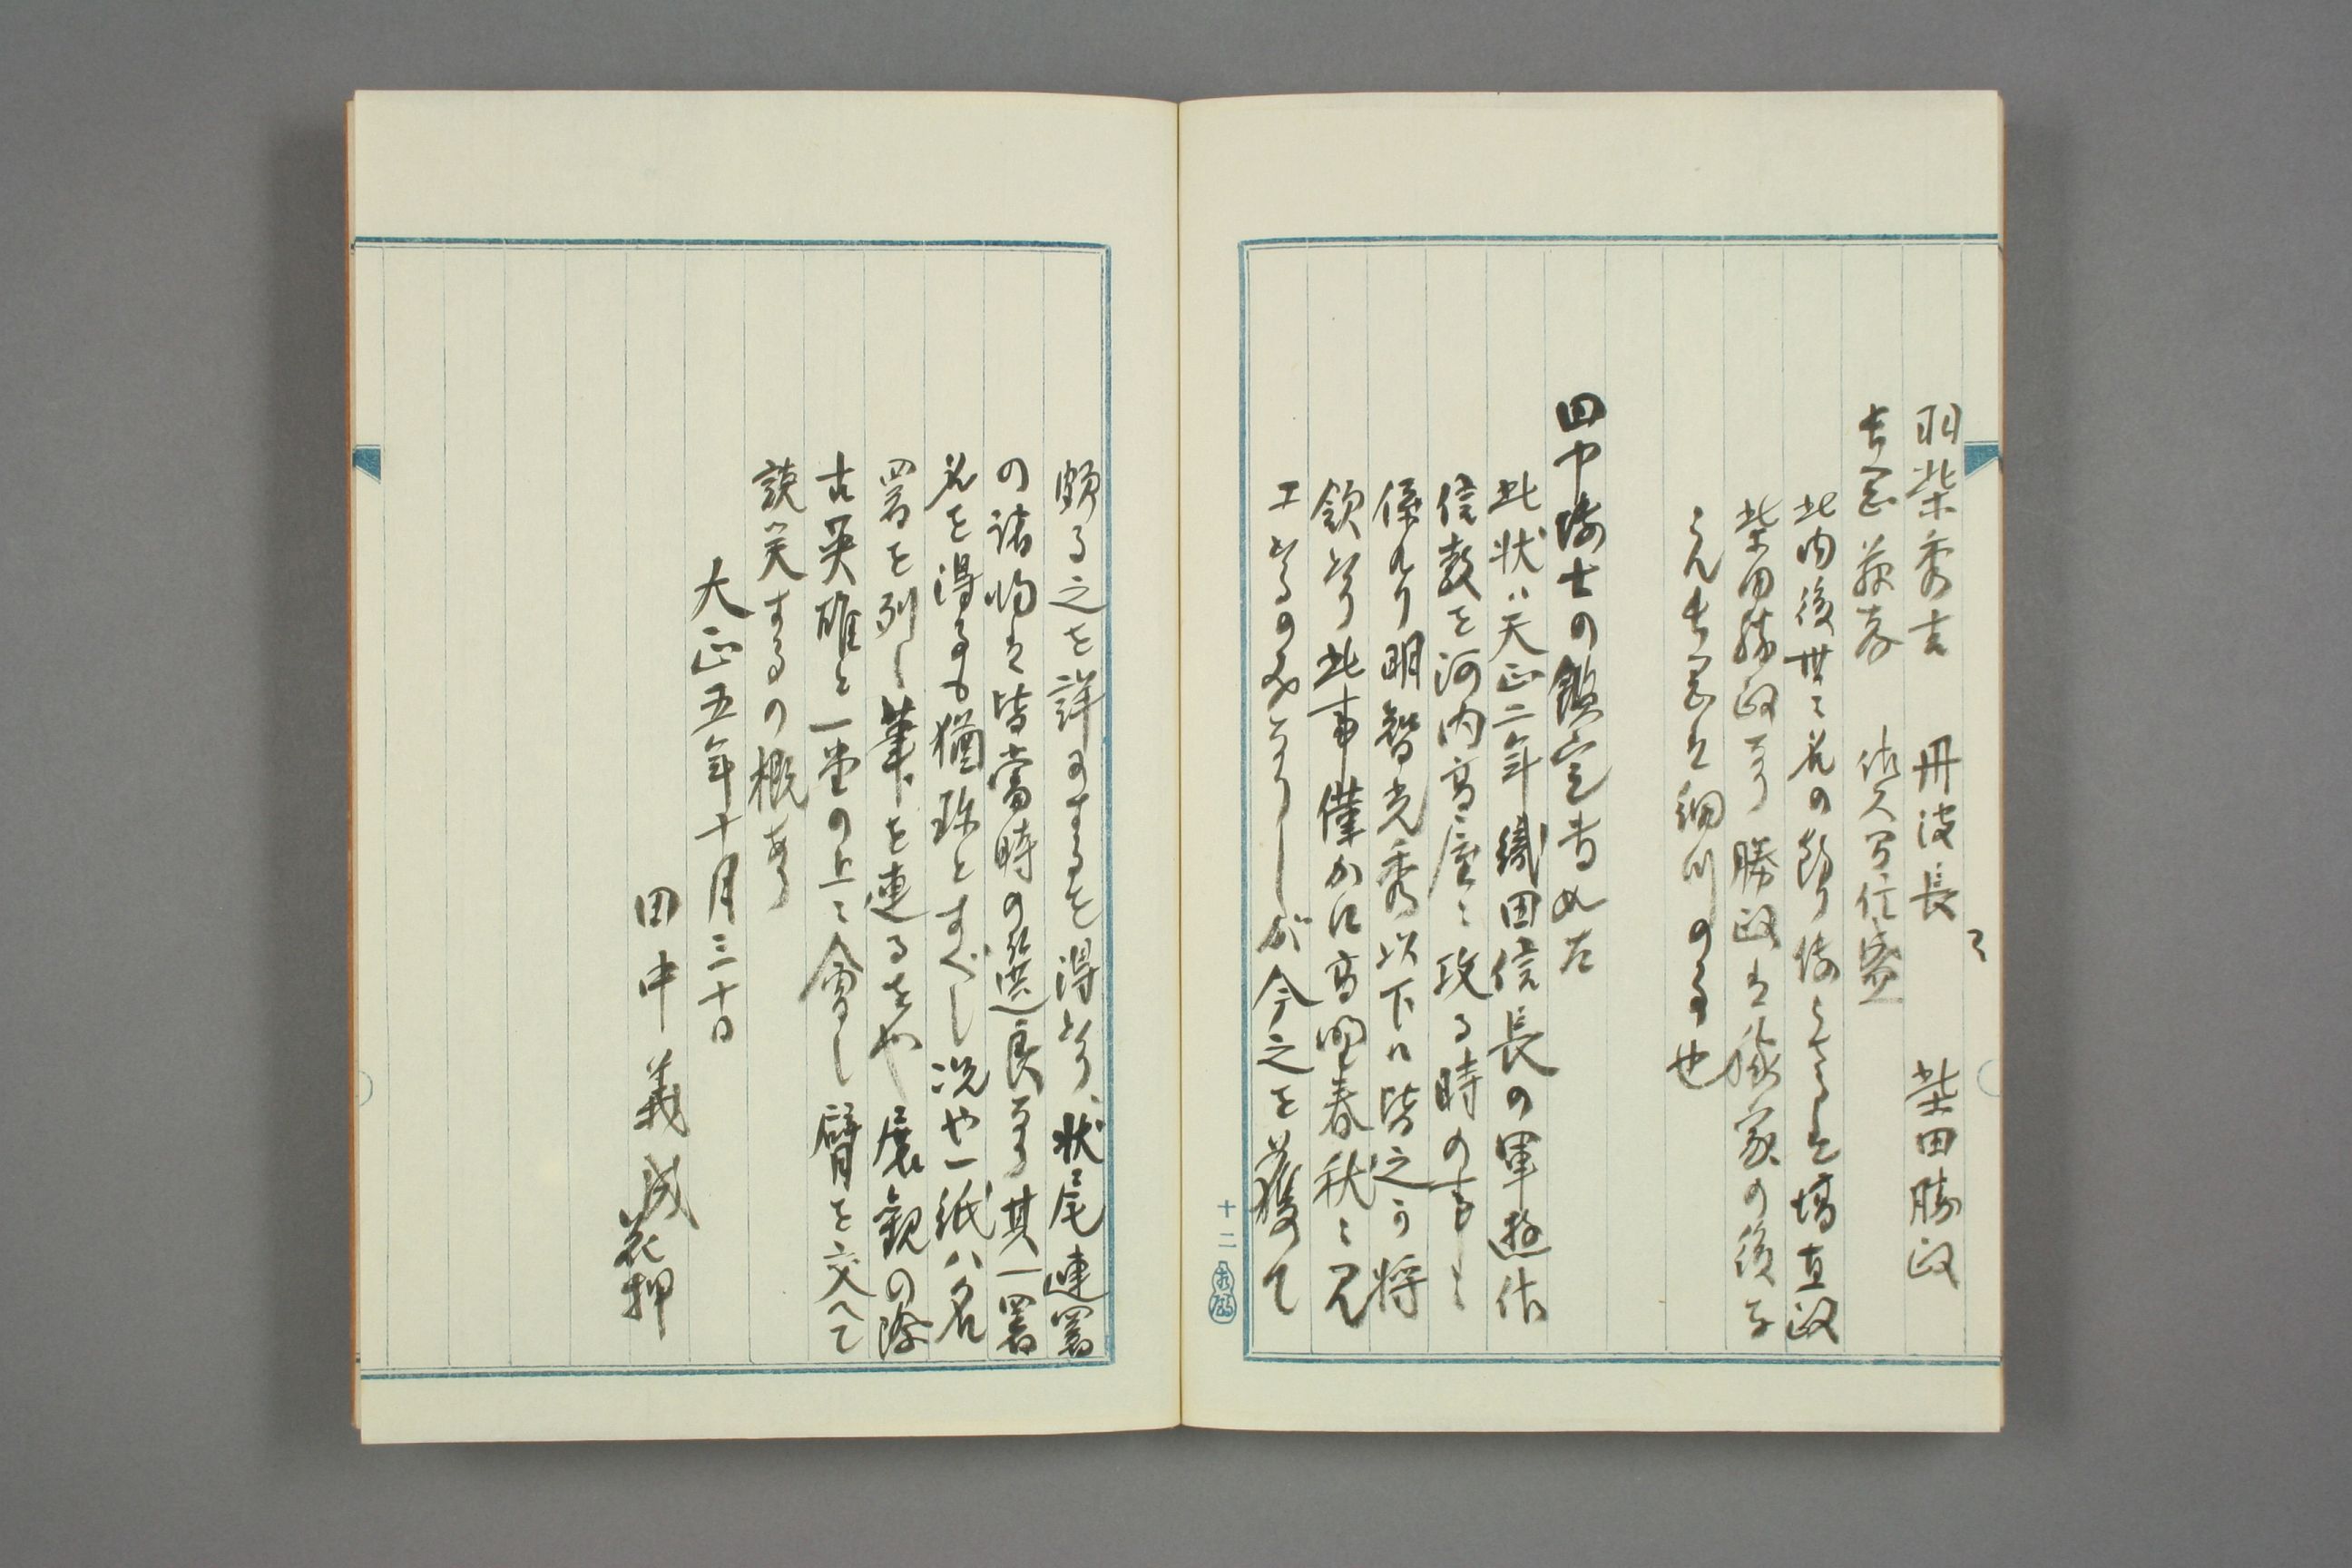 羽柴秀吉 丹波長ニ 柴田勝政
長岡藤孝 佐久間信盛
此内後世ニ名の餘り傳ハらさるは塙直政
柴田勝政なり勝政は勝家の後子
なり長岡は細川の事也
田中博士の鑑定書如左
此状ハ天正二年織田信長の軍遊佐
信教を河内高屋ニ攻る時の事ニ
係れり明智光秀以下ハ皆之か将
領なり此事僅かに高野春秋ニ見
エたるのみなりしが今之を獲て
頗る之を詳のするを得たり、状尾連署
の諸将は皆當時の選良なり其一署
名を得るも猶珍とすべし况や一紙ハ名
署を列し筆を連るをや展観の際
古英雄と一堂の上ニ會し臂を交へて
談笑するの概あり
大正五年十月三十日
田中義成花押
十二